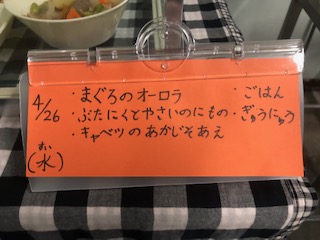 4/26
(水)
すい
・まぐろのオーロラ ・ごはん
・ぶたにくとやさいのにもの ・ぎゅうにゅう
・キャベツのあかじそあえ